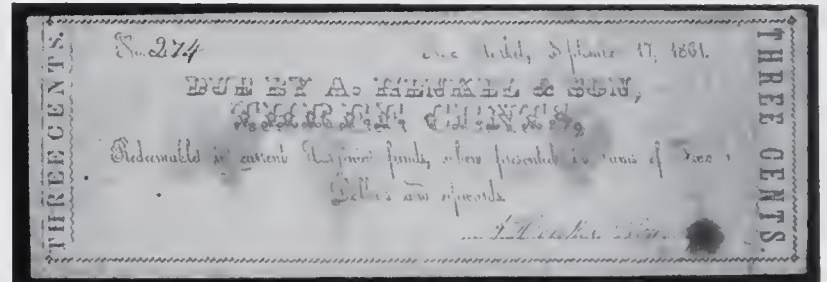 THREE CENTS.
No. 274
17, 1861.
DUE BY A. HENKEL & SON,
THREE CENTS,
Redeemable in current Virginia funds, when presented in sums of
Dollars and upwards
THREE CENTS.